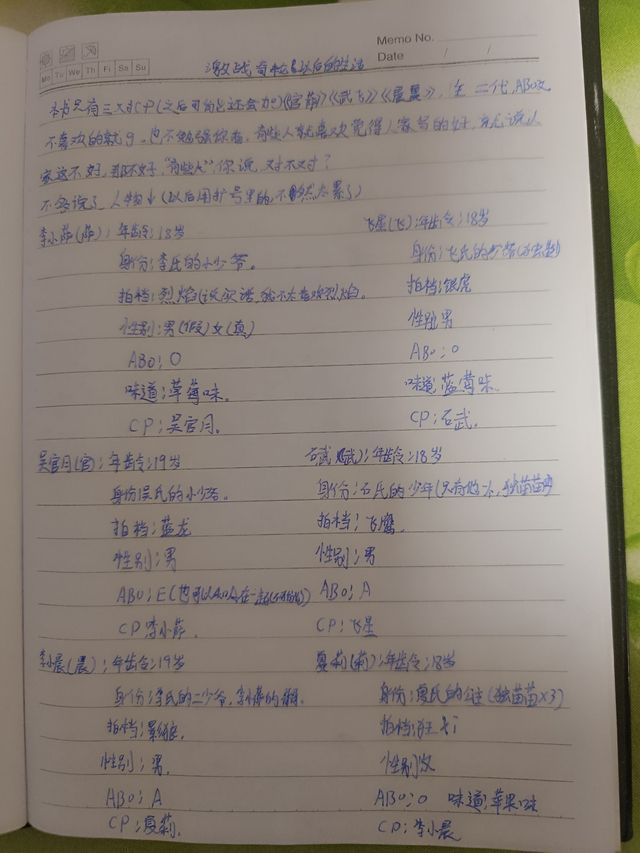 Memo No.
Mo Tu We Th Fi Sa Su
Date / /
激战奇轮 以后的生活
本书只有三对CP(之后可能还会加)《宫萍》《武飞》《晨夏》,生二代,ABO文
不喜欢的就 ,也不勉强你看,有些人就喜欢觉得人家写的好,有人说人
家这不好,那不好,"有些人"你说,对不对?
不多说了,人物↓(以后用扩号里的,不然太累了)
李小萍(萍):年龄:18岁 飞星(飞):年龄:18岁
身份:李氏的小少爷。 身份:飞氏的少爷
拍档:烈焰 拍档:银虎
性别:男(假)女(真) 性别:男
ABO:O ABO:O
味道:草莓味。 味道:蓝莓味
CP:吴宫月。 CP:石武。
吴宫月(宫):年龄:19岁 石武(武):年龄:18岁
身份:吴氏的小少爷。 身份:石氏的少年(只有他一个,独苗苗
拍档:蓝龙 拍档:飞鹰
性别:男 性别:男
ABO:E ABO:A
CP:李小萍。 CP:飞星
李小晨(晨):年龄:19岁 夏莉(莉):年龄:18岁
身份:李氏的二少爷,李小萍的 身份:夏氏的公主(独苗苗×3)
拍档: 拍档:
性别:男。 性别:女
ABO:A ABO:O 味道:苹果味
CP:夏莉。 CP:李小晨